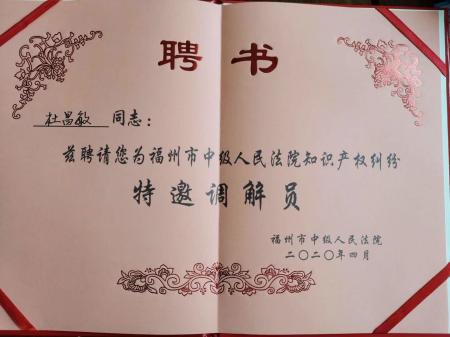 聘书
杜昌敏 同志：
兹聘请您为福州市中级人民法院知识产权纠纷
特邀调解员
福州市中级人民法院
二〇二〇年四月